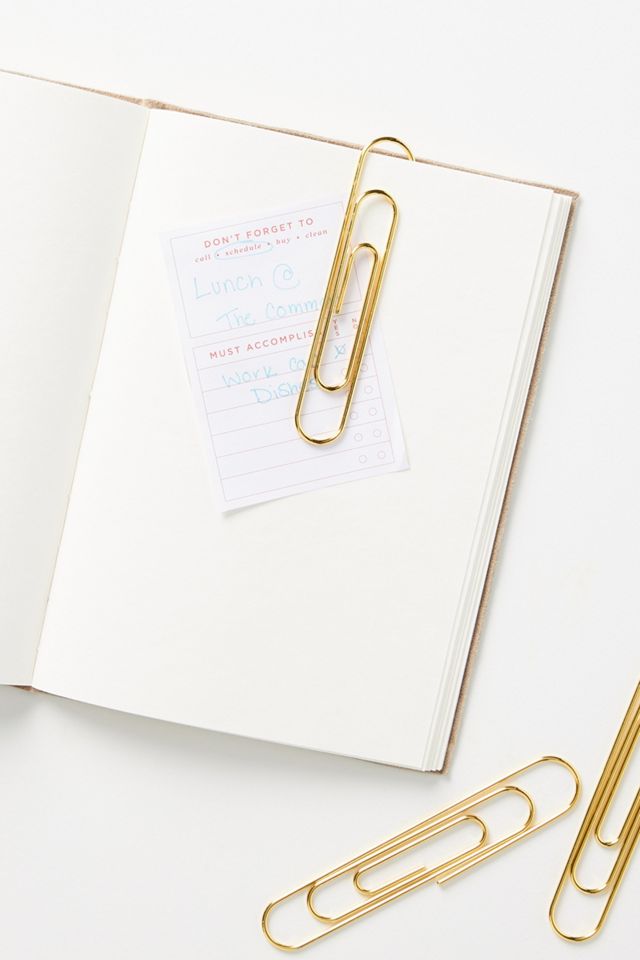 DON'T FORGET TO
call • schedule • buy • clean
Lunch @
The
MUST ACCOMPLIS
YES
NO
Work